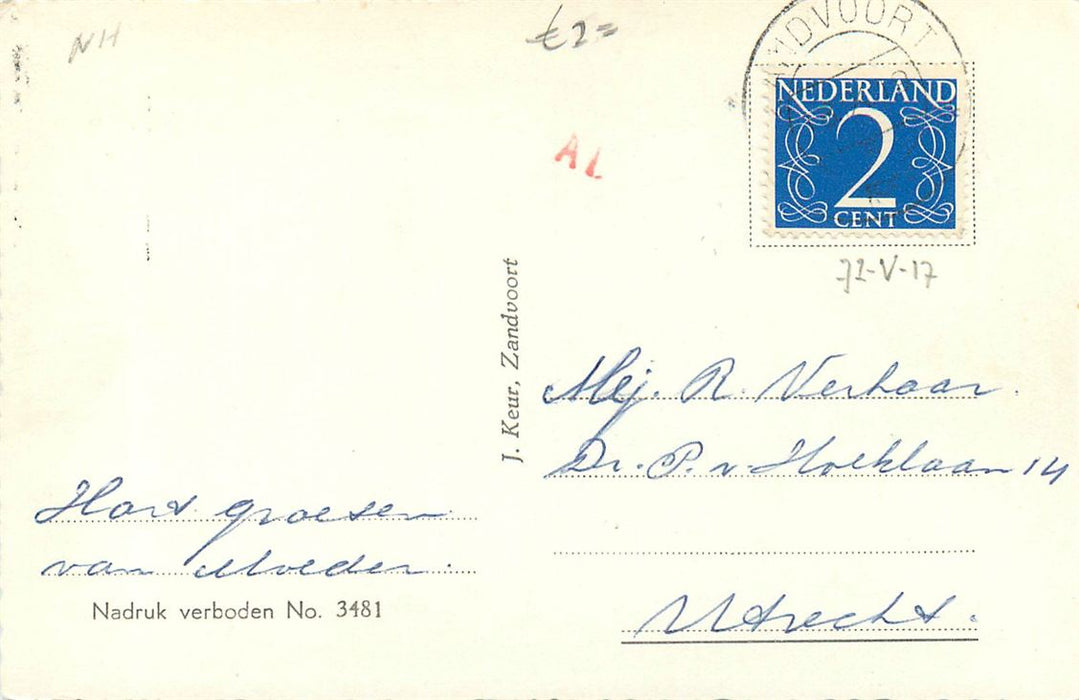 NH
€2=
ZANDVOORT
NEDERLAND
2
CENT
AL
J. Keur, Zandvoort
Mej. R. Verhaar.
Dr. P. v. Hoeklaan 14
Utrecht.
Hart. groeten
van Moeder.
Nadruk verboden No. 3481